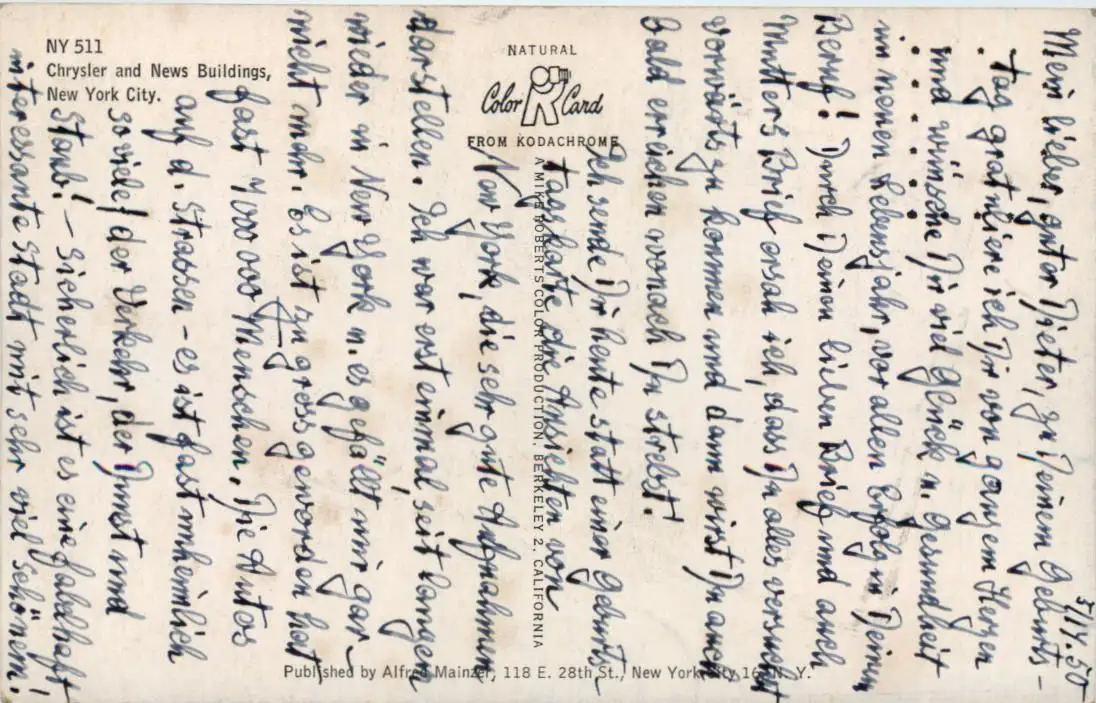 NY 511
Chrysler and News Buildings,
New York City.
NATURAL
Color Card
FROM KODACHROME
A MIKE ROBERTS COLOR PRODUCTION, BERKELEY 2, CALIFORNIA
Published by Alfred Mainzer, 118 E. 28th St., New York City 16, N. Y.
5/14.50
Mein lieber, guter Dieter, zu Deinem Geburts-
tag gratuliere ich Dir von ganzem Herzen
und wünsche Dir viel Glück u. Gesundheit
im neuen Lebensjahr, vor allen Erfolg in Deinem
Beruf! Durch Deinen lieben Brief und auch
Mutters Brief ersah ich, dass Du alles versuchst
vorwärts zu kommen und dann wirst Du auch
bald erreichen wonach Du strebst.
Ich sende Dir heute statt einer Geburts-
tagskarte die Ansichten von
New York, die sehr gute Aufnahmen
darstellen. Ich war erst einmal seit langem
wieder in New York u. es gefällt mir gar-
nicht mehr. Es ist zu gross geworden hat
fast 9000000 Menschen. Die Autos
auf d. Strassen - es ist fast unheimlich
so viele! der Verkehr, der Dunst und
Staub! - Sicherlich ist es eine fabelhaft
interessante Stadt mit sehr viel "schönem!